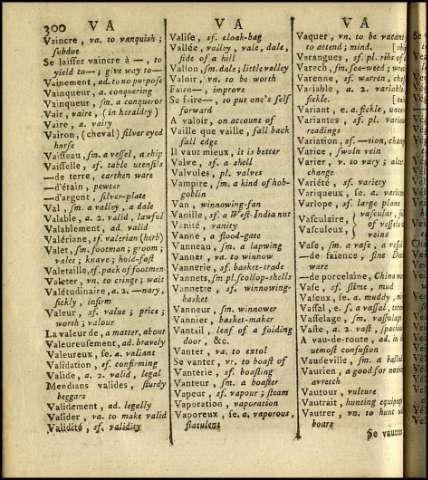 300 V A
V A
V A
Vaincre, va. to vanquish;
subdue
Se laisser vaincre à —, to
yield to—; give way to—
Vainement, ad. to no purpose
Vainqueur, a. conquering
Vainqueur, sm. a conqueror
Vair, vaire, (in heraldry)
Vaire, a. vairy
Vairon, (cheval) silver eyed
horse
Vaisseau, sm. a vessel, a ship
Vaisselle, sf. table utensils
—de terre, earthen ware
—d'étain, pewter
—d'argent, silver-plate
Val, sm. a valley, a dale
Valable, a. 2. valid, lawful
Valablement, ad. valid
Valériane, sf. valerian (herb)
Valet, sm. footman; groom;
valet; knave; hold-fast
Valetaille, sf. pack of footmen
Valeter, vn. to cringe; wait
Valétudinaire, a. 2. —nary,
sickly, infirm
Valeur, sf. value; price;
worth; valour
La valeur de, a matter, about
Valeureusement, ad. bravely
Valeureux, se. a. valiant
Validation, sf. confirming
Valide, a. 2. valid, legal
Mendians valides, sturdy
beggars
Validement, ad. legally
Valider, vn. to make valid
Validité, sf. validity
Valise, sf. cloak-bag
Vallée, valley, vale, dale,
side of a hill
Vallon, sm. dale; little valley
Valoir, vn. to be worth
Faire—, improve
Se faire—, to put one's self
forward
A valoir, on account of
Vaille que vaille, fall back
fall edge
Il vaut mieux, it is better
Valve, sf. a shell
Valvules, pl. valves
Vampire, sm. a kind of hob-
goblin
Van, winnowing-fan
Vanille, sf. a West-India nut
Vanité, vanity
Vanne, a flood-gate
Vanneau, sm. a lapwing
Vanner, va. to winnow
Vannerie, sf. basket-trade
Vannets, sm. pl. scollop-shells
Vannette, sf. winnowing-
basket
Vanneur, sm. winnower
Vannier, basket-maker
Vantail, leaf of a folding
door, &c.
Vanter, va. to extol
Se vanter, vr. to boast of
Vanterie, sf. boasting
Vanteur, sm. a boaster
Vapeur, sf. vapour; steam
Vaporation, vaporation
Vaporeux, se. a. vaporous,
flatulent
Vaquer, vn. to be vacant
to attend; mind.
Varangues, sf. pl. ribs of
Varech, sm. sea-weed;
Varenne, sf. warren,
Variable, a. 2. variable,
fickle.
Variant, e. a. fickle,
Variantes, sf. pl. various
readings
Variation, sf. —tion,
Varice, swoln vein
Varier, v. to vary;
change
Variété, sf. variety
Variqueux, se. a.
Varlope, sf. large plane
Vasculaire,
Vasculeux,
vascular,
of vessels
veins
Vase, sm. a vase, a
—de faience, fine
ware
—de porcelaine, China
Vase, sf. slime, mud
Vaseux, se. a. muddy,
Vassal, e. s. a vassal,
Vasselage, sm. vassalage
Vaste, a. 2. vast,
A vau-de-route, ad. in
utmost confusion
Vaudeville, sm. a ballad
Vaurien, a good for nothing
wretch
Vautour, vulture
Vautrait, hunting equipage
Vautrer, vn. to hunt
boars
Se vautrer